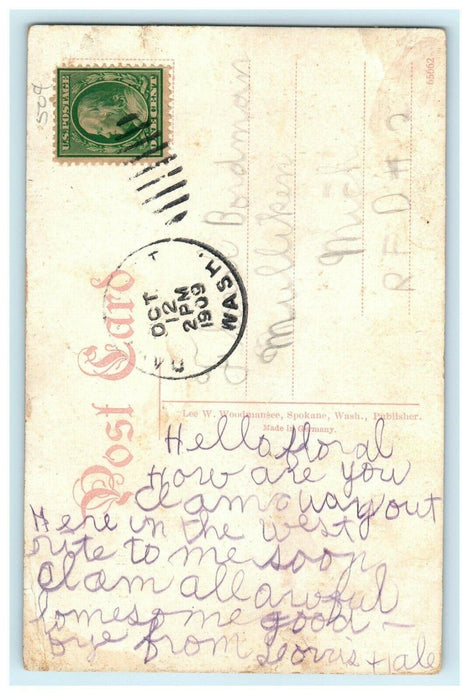 509
U.S. POSTAGE
ONE CENT
OCT
12
2 PM
1909
WASH.
65662
Boardman
Mulliken
Mich
RFD #2
Post Card
Lee W. Woodmansee, Spokane, Wash., Publisher.
Made in Germany.
Hello floral
How are you
I am away out
Here in the west
rite to me soon
I am all awful
lomesome good -
bye from Dorris Hale